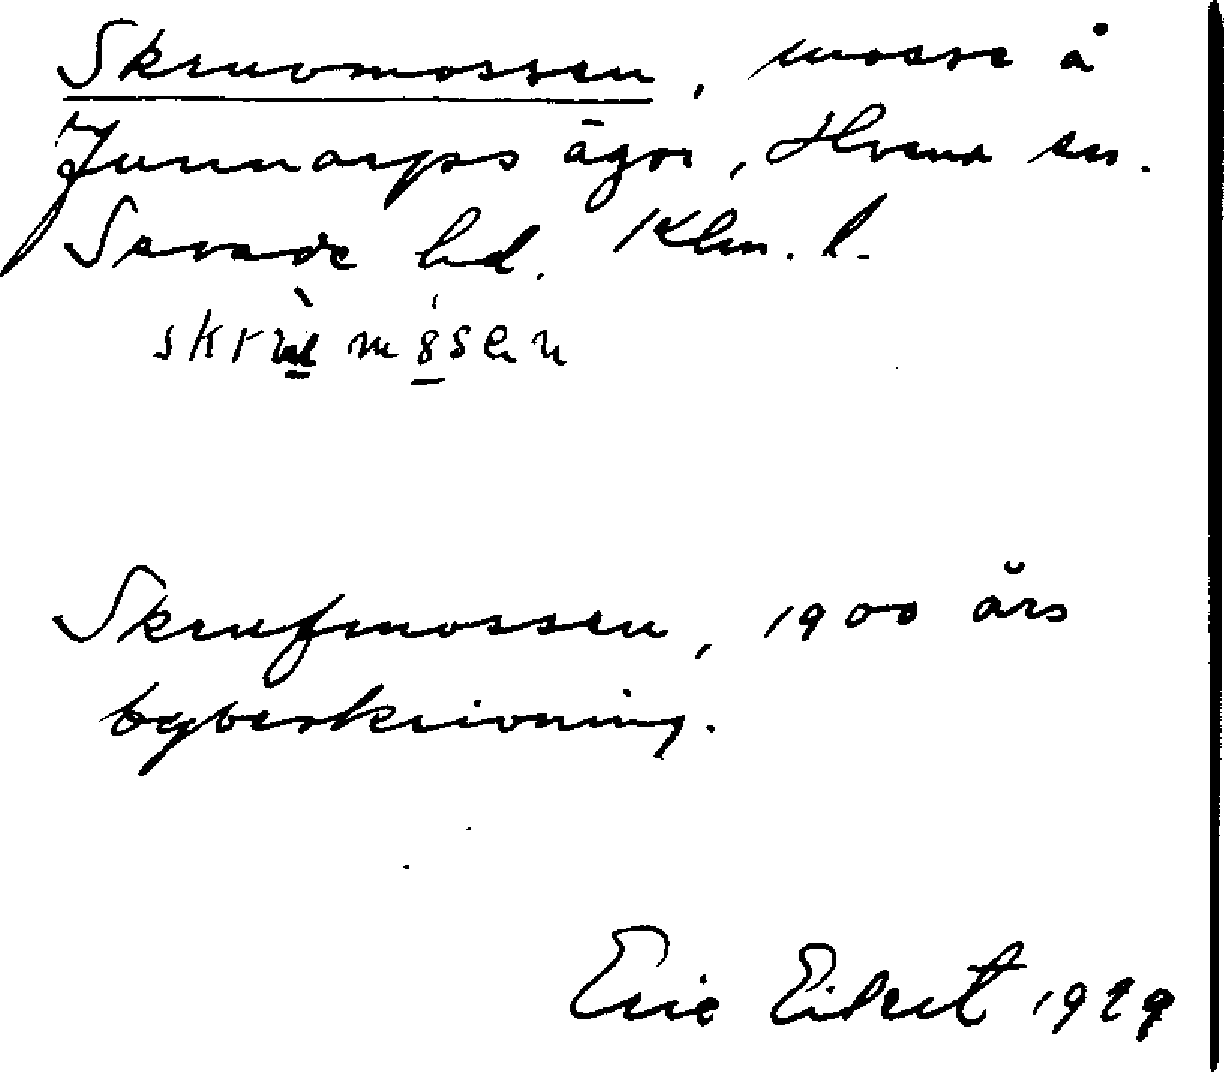 Skruvmossen, mosse å
Junnarps ägor, Hvena sn.
Sevede hd. Klm. l.
Skrufmossen, 1900 års
bybeskrivning.
Eric Eikert 1929